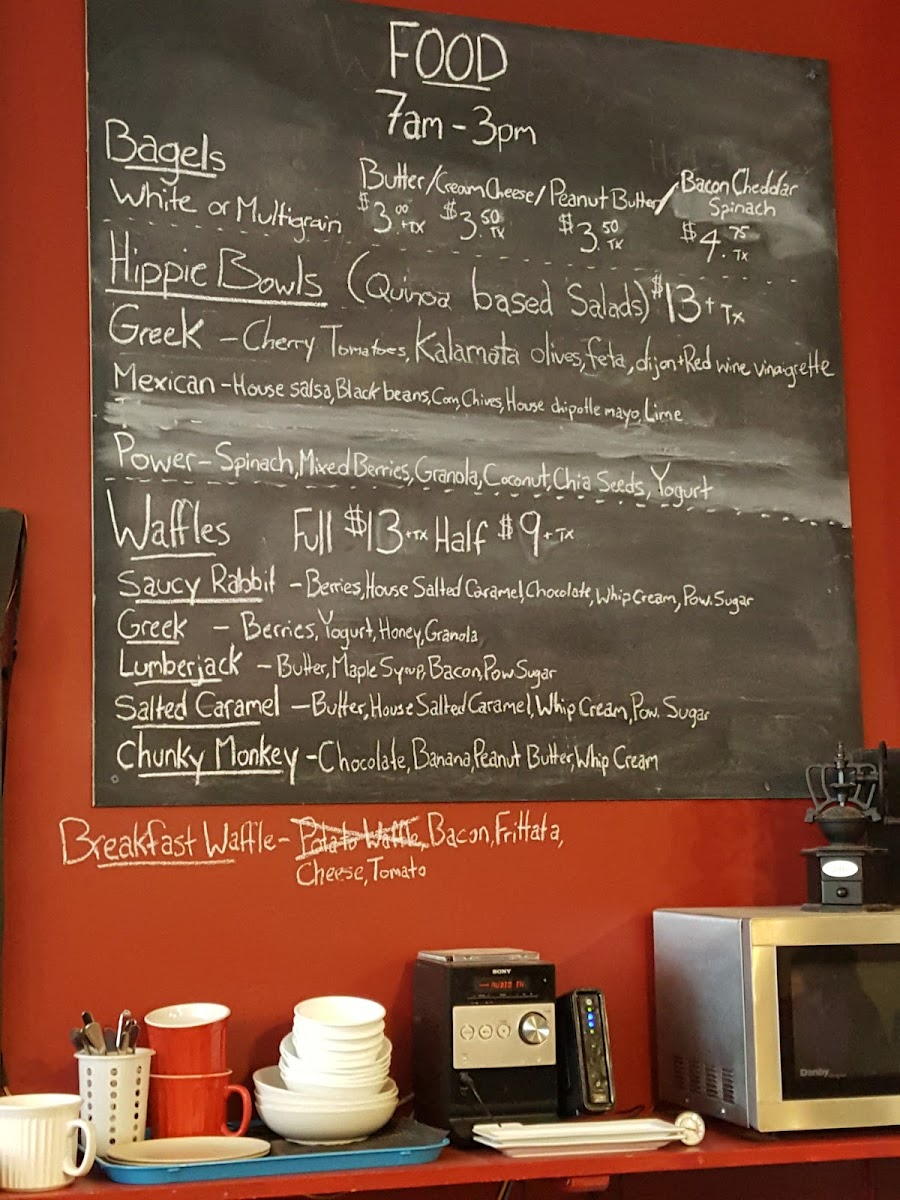 FOOD
7am - 3pm
Bagels
White or Multigrain
Butter/Cream Cheese/Peanut Butter/Bacon Cheddar Spinach
$3.00 +TX $3.50 TX $3.50 TX $4.75 Tx
Hippie Bowls (Quinoa based Salads) $13 + Tx
Greek - Cherry Tomatoes, Kalamata olives, feta, dijon + Red wine vinaigrette
Mexican - House salsa, Black beans, Corn, Chives, House chipotle mayo, Lime
Power - Spinach, Mixed Berries, Granola, Coconut, Chia Seeds, Yogurt
Waffles Full $13 +TX Half $9 + TX
Saucy Rabbit - Berries, House Salted Caramel, Chocolate, Whip Cream, Pow. Sugar
Greek - Berries, Yogurt, Honey, Granola
Lumberjack - Butter, Maple Syrup, Bacon, Pow Sugar
Salted Caramel - Butter, House Salted Caramel, Whip Cream, Pow. Sugar
Chunky Monkey - Chocolate, Banana, Peanut Butter, Whip Cream
Breakfast Waffle - Potato Waffle, Bacon, Frittata,
Cheese, Tomato
SONY
AUDIO IN
Danby